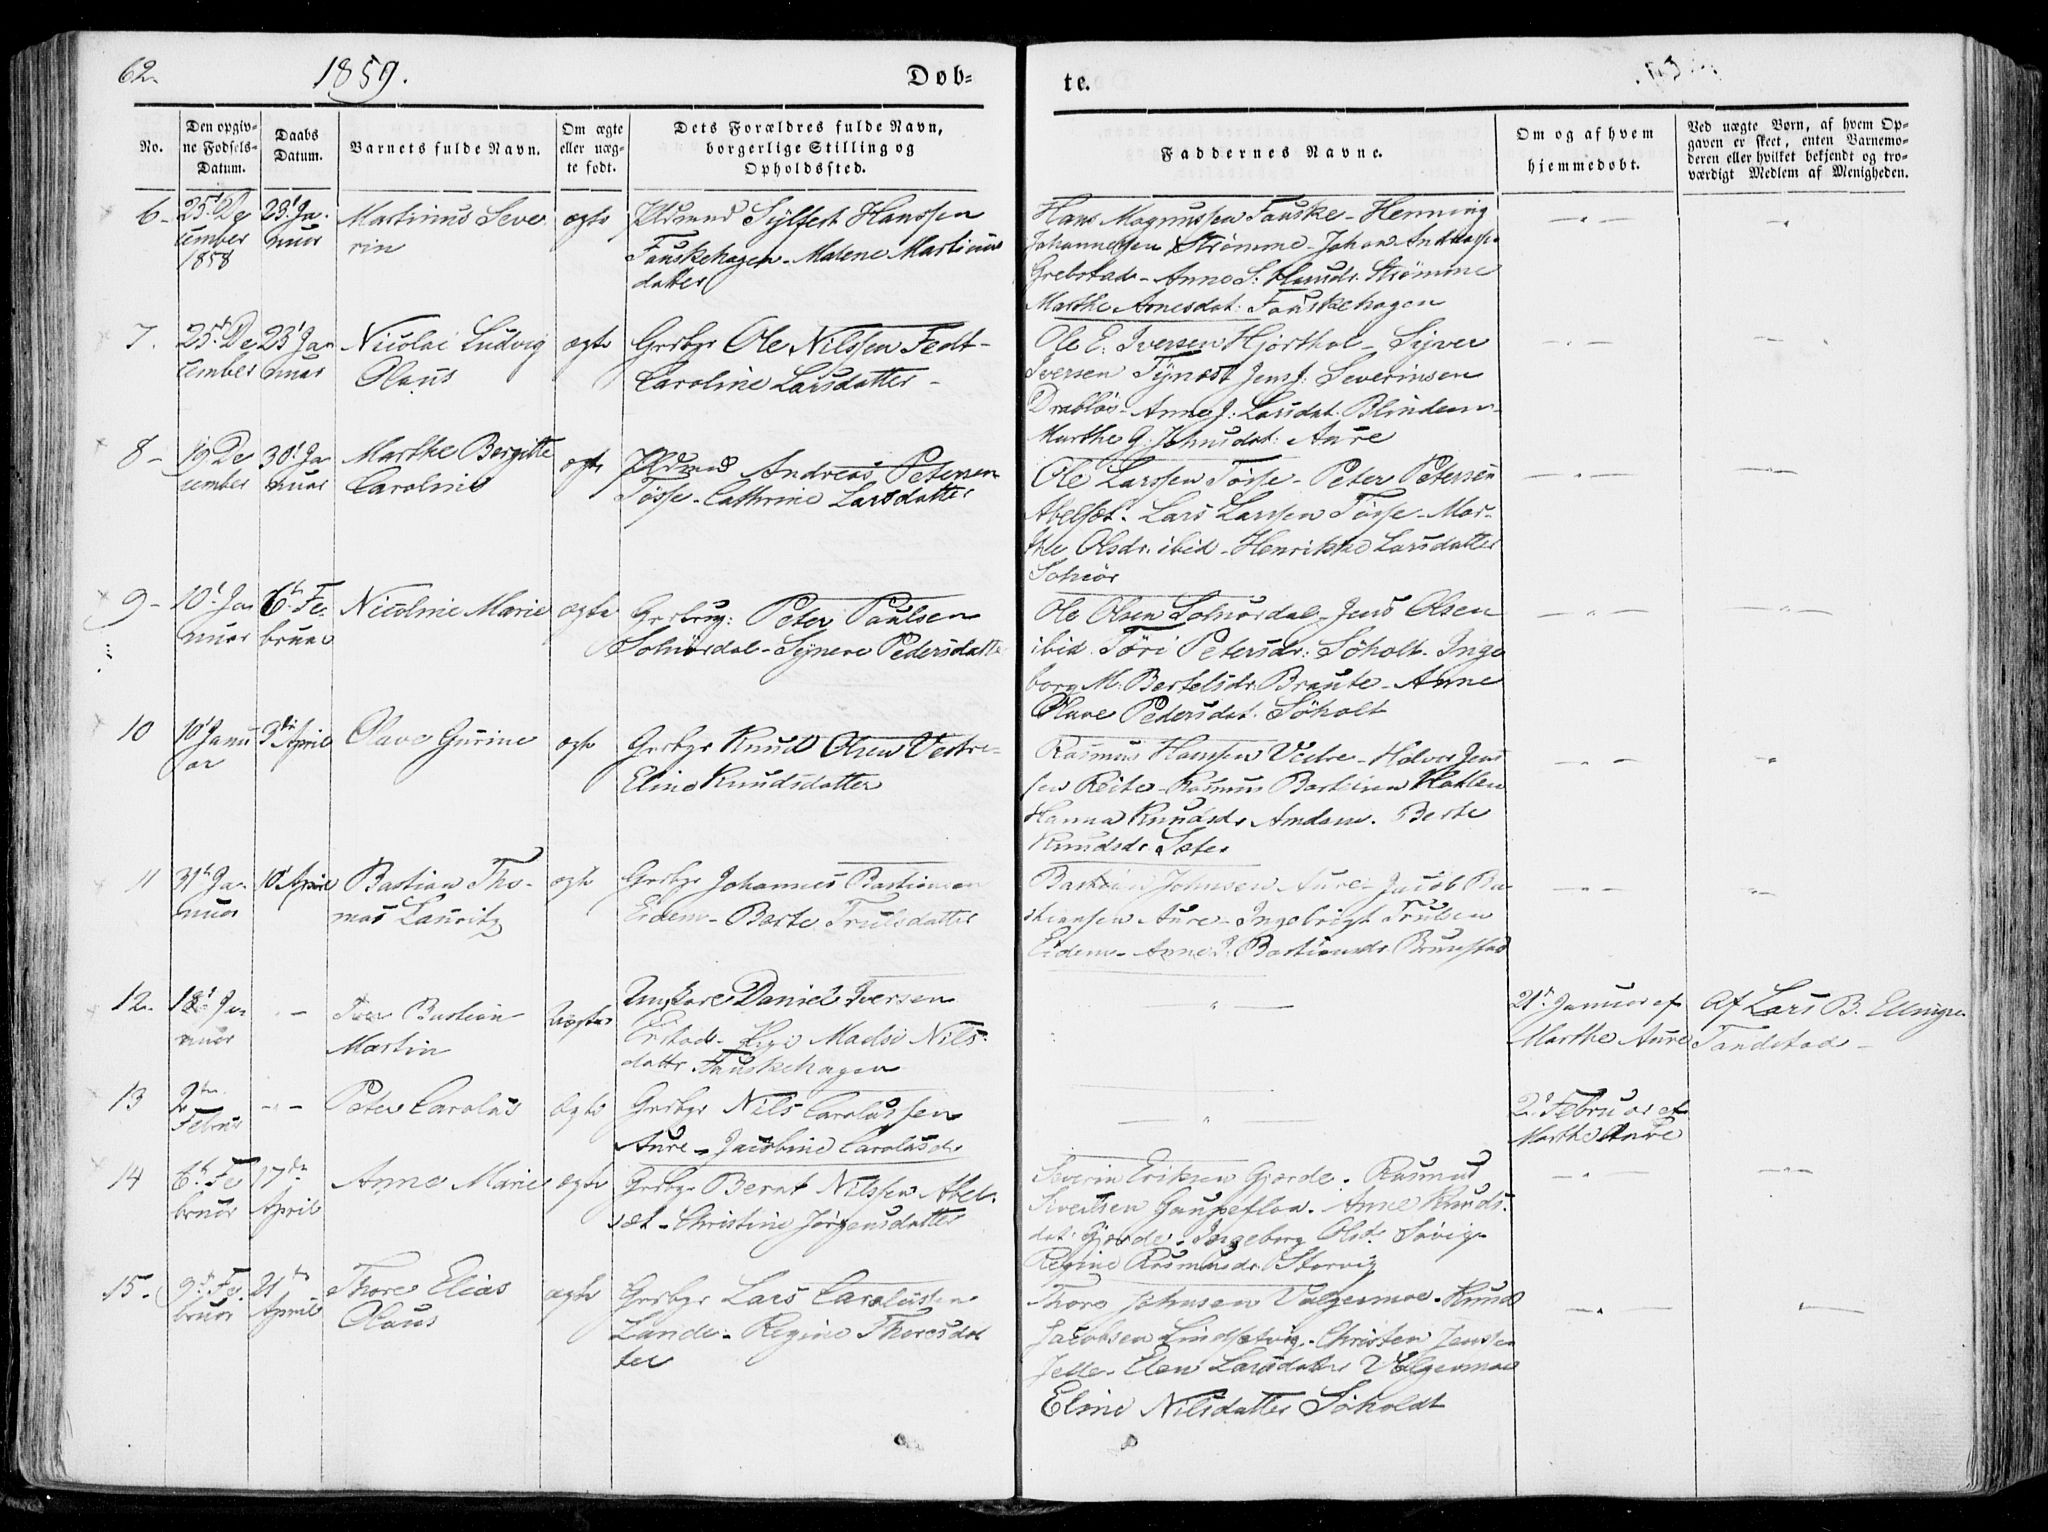 62.
1859.
Døb-
te.
No.
Den opgiv-
ne Fødsels-
Datum.
Daabs
Datum.
Barnets fulde Navn.
Om ægte
eller uæg-
te født.
Dets Forældres fulde Navn,
borgerlige Stilling og
Opholdssted.
Faddernes Navne.
Om og af hvem
hjemmedøbt.
Ved uægte Børn, af hvem Op-
gaven er skeet, enten Barnemo-
deren eller hvilket bekjendt og tro-
værdigt Medlem af Menigheden.
6-
25 De
cember
1858
23 Ja.
nuar
Martinus Seve
rin
ægte
Sylfest Hanssen
Fauskehagen - Malene Martinus
datter
Hans Magnussen Fauske - Henning
Johannessen Strømme - Johan Andreass.
Grebstad - Anne S: Hansdr. Strømme
Marthe Arnesdat: Fauskehagen
7.
25 De
cember
23 Ja
nuar
Nicolai Ludvig
Olaus
ægte
Grdbgr Ole Nilssen Fedt-
Caroline Larsdatter -
Ole E. Iversen Hjorthol - Syver
Iversen Tynæst Jens J. Severinsen
Drabløs - Anne J: Larsdat. Blindem
Marthe G. Johnsdat: Aure
8 -
19 De
cember
30 Ja
nuar
Marthe Bergitte
Caroline
ægte
Andreas Petersen
Tøsse - Cathrine Larsdatter
Ole Larssen Tøsse - Peter Petersen
Abelsæt - Lars Larssen Tøsse - Mar-
the Olsdr. ibid - Henrikke Larsdatter
Solnør
9 -
10 Ja
nuar
6 Fe
bruar
Nicoline Marie
ægte
Peter Paulsen
Solnørdal - Synere Pedersdatter
Ole Olsen Solnørdal - Jens Olsen
ibid. Tøri Petersdr: Søholt - Inge
borg M: Bertelsdr. Braute - Anne
Olave Pedersdat. Søholt
10
10 Janu
ar
3die April
Olave Gurine
ægte
Grdbgr Knud Olsen Vestre -
Eline Knudsdatter
Rasmus Hanssen Vestre - Halvor Jens
sen Reite - Rasmus Bastiansen Hatlen
Hanna Knudsdr Amdam. Berte
Knudsdr. Sæter
11
31te Ja-
nuar
10 April
Bastian Tho-
mas Lauritz
ægte
Grdbgr Johannes Bastiansen
Eidem - Berte Trulsdatter
Bastian Johnsen Aure - Jacob Ba
stiansen Aure - Ingebrigt Trulsen
Eidem - Anne Bastiansdr Brunstad
12.
18 Ja
nuar
Iver Bastian
Martin
Uægte
Ungkare Daniel Iversen
Pige Madse Nils-
datter Fauskehagen
21 Januar af
Marthe Aure
Af Lars B. Ellingsæ
Tandstad -
13
2den
Februar
Peter Carolus
Ægte
Grdbgr Nils Carolussen
Aure - Jacobine Carolusdr
2 Februar af
Marthe Aure
14
6 Fe
bruar
17de
April
Anne Marie
ægte
Grdbgr Bernt Nilssen Abel-
sæt - Christine Jørgensdatter
Severin Eriksen Gjærde. Rasmus
Sivertsen Gaupefloa. Anne Knuds-
dat: Gjærde - Ingeborg Olsdr Søvig -
Regine Rasmusdr. Storvig
15.
9 Fe.
bruar
21
April
Thore Elias
Olaus
ægte
Grdbgr Lars Carolussen
Lande - Regine Thoresdat
ter
Thore Johnsen Valgermoe - Knud
Jacobsen Lindsetvig - Christen Jenssen
Jelle - Elen Larsdatter Valgermoe
Eline Nilsdatter Søholdt